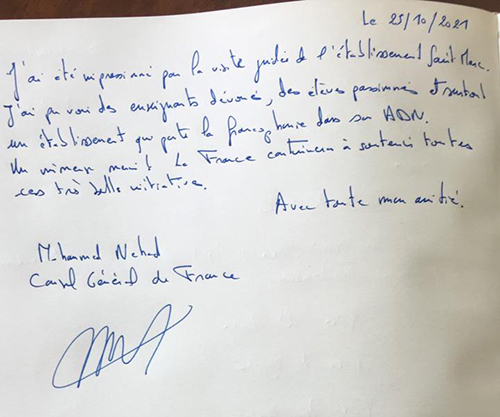 Le 25/10/2021
J'ai été impressionné par la visite guidée de l'établissement Saint Marc.
J'ai pu voir des enseignants dévoués, des élèves passionnés et surtout
un établissement qui porte la francophonie dans son ADN.
Un immense merci! La France continuera à soutenir toutes
ces très belle initiative.
Avec toute mon amitié.
Mohammed Nehad
Consul Général de France